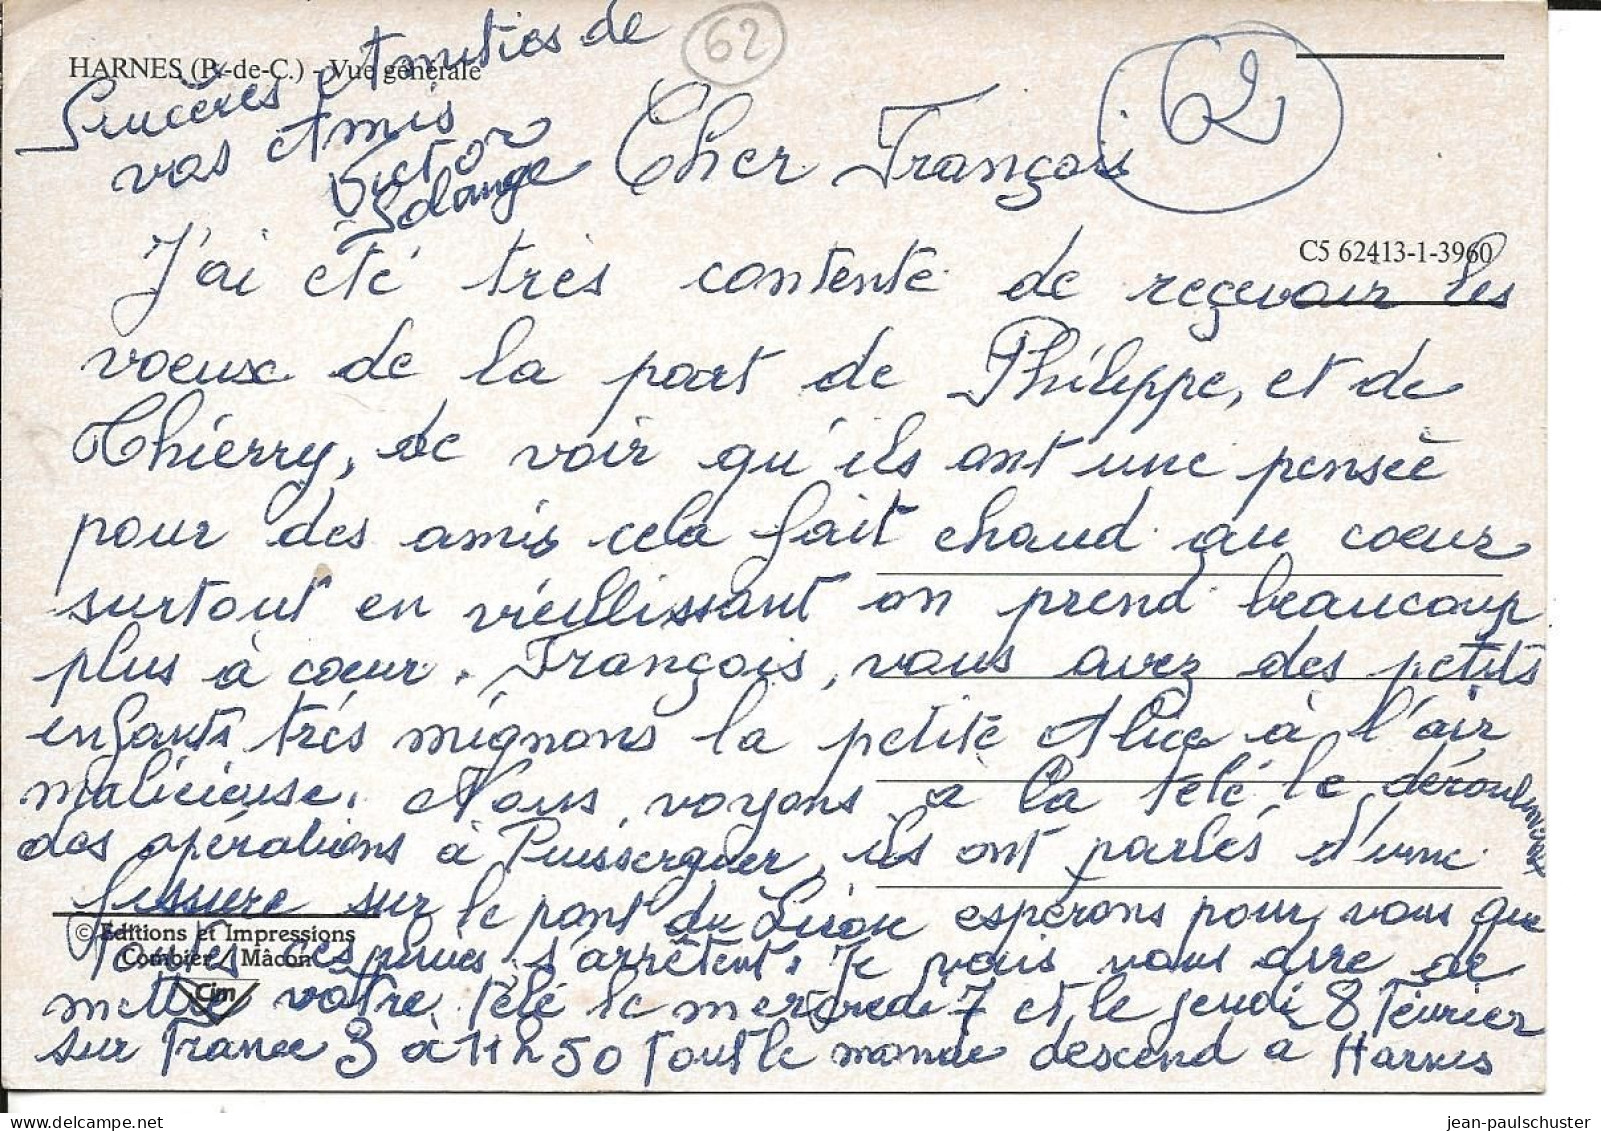 HARNES (P.-de-C.) - Vue générale
Sincères Amitiés de
vos Amis
Victor
Solange
62
62
Cher François
C5 62413-1-3960
J'ai été très contente de reçevoir les
voeux de la part de Philippe, et de
Thierry, de voir qu'ils ont une pensée
pour des amis cela fait chaud au coeur
surtout en vieillissant on prend beaucoup
plus à coeur. François, vous avez des petits
enfants très mignons la petite Alice à l'air
malicieuse. Nous voyons à la télé le déroulement
des opérations à Puisserguier, ils ont parlés d'une
fissure sur le pont du Liron espérons pour vous que
toutes ces pluies s'arrêtent. Je vous
mettre votre télé le mercredi 7 et le jeudi 8 Février
sur France 3 à 11h50 tout le monde descend a Harnes
© Editions et Impressions
Combier / Mâcon
Cim
jean-paulschuster